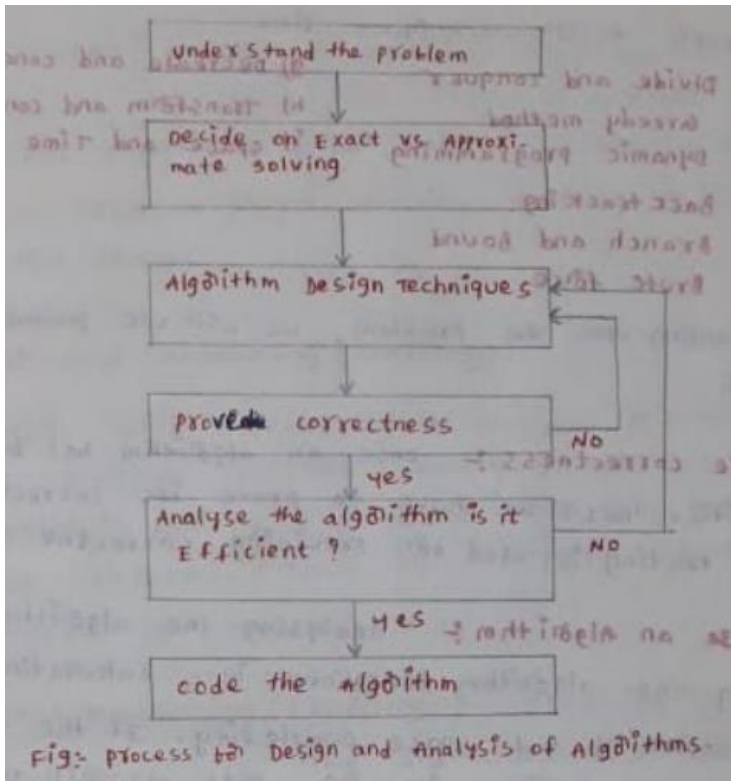 understand the problem
Decide on Exact vs Approxi-
mate solving
Algorithm Design Techniques
prove correctness
NO
yes
Analyse the algorithm is it
Efficient ?
NO
yes
code the Algorithm
Fig:- process for Design and Analysis of Algorithms